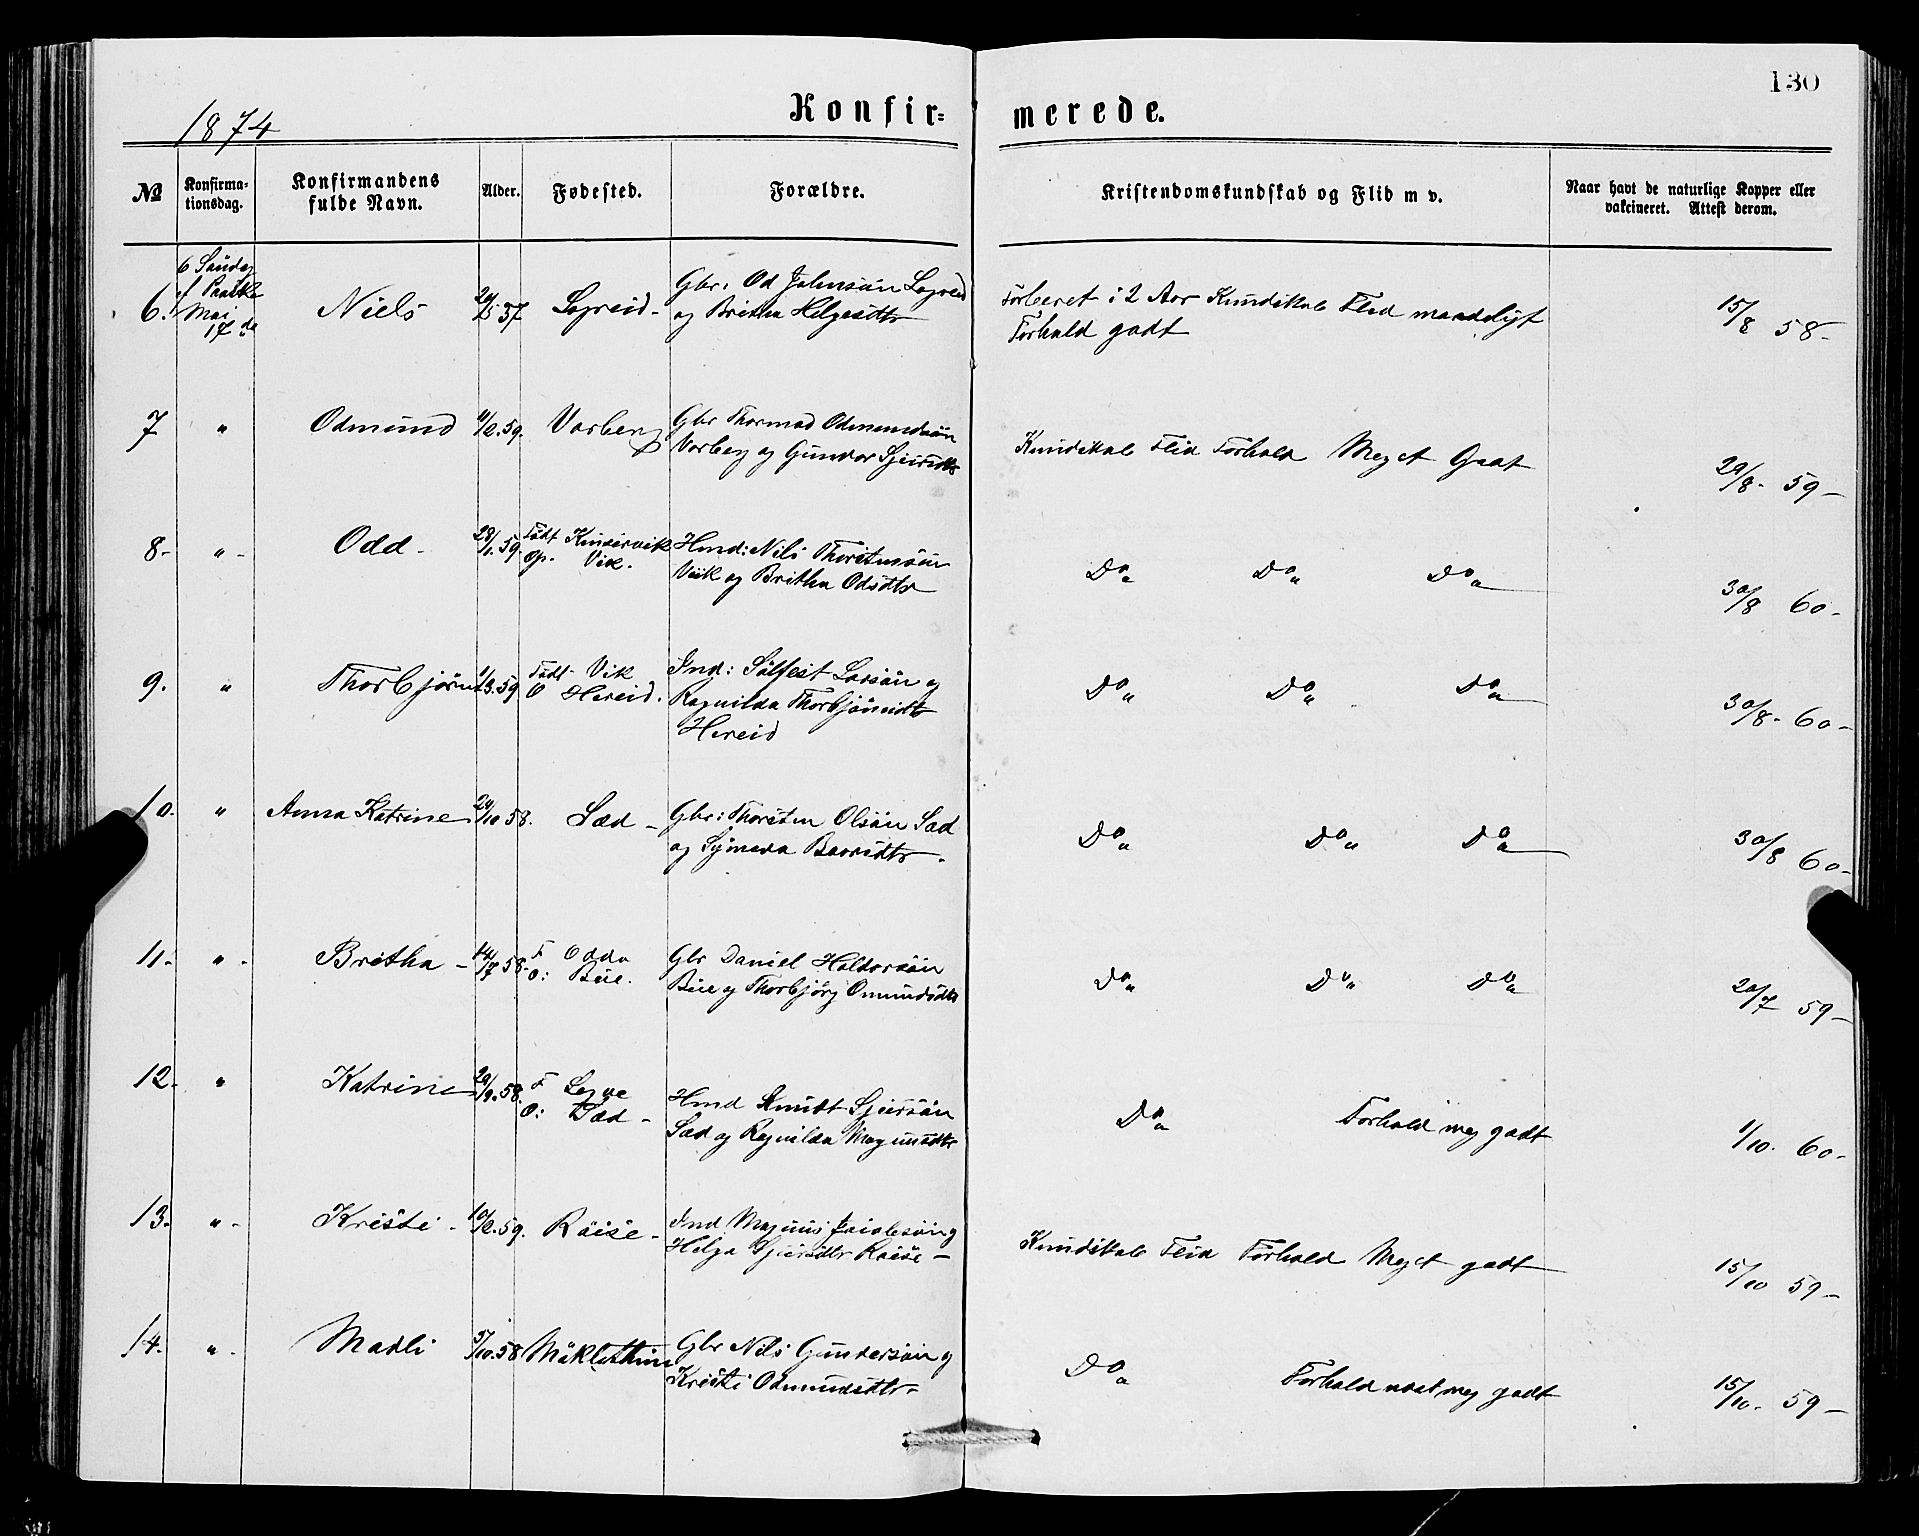 130
1874 Konfir= merede.
№ Konfirma=tionsdag. Konfirmandens fulde Navn. Alder. Fødested. Forældre. Kristendomskundskab og Flid m v. Naar havt de naturlige Kopper eller vakcineret. Attest derom.
6 Søndag
Mai
17de
6. Niels 57 Legreid - Gbr: Od Johnsøn Legreid
og Britha Helgesdtr
Forberet i 2 Aar Kundskab Flid maadeligt
Forhold godt
15/8 58-
7 " Odmund 11/2.59. Vorberg Gbr Thormod Odmundsøn
Vorberg og Gunvor Sjursdtr
Kundskab Flid Forhold Meget Godt 29/8- 59-
8- "- Odd- 28/1.59 Født Kinservik Hmd: Nils Thorstensøn
Op. Vik. Viik og Britha Odsdtr
Do" Do" Do" 30/8 60-
9. " Thorbjørn 1/3.59 Født Vik Ind: Sølfest Larsøn og
O Hereid. Ragnilda Thorbjørnsdtr
Hereid
Do" Do" Do" 30/8- 60-
10. " Anna Katrine 24/10 58. Sæd- Gbr: Thorsten Olsøn Sæd
og Synneva Baarsdtr-
Do" Do" Do" 30/8 60-
11.- "- Britha - 14/7 58- F Odda Gbr Daniel Haldorsøn
O: Büe. Büe og Thorbjørg Omundsdtr
Do" Do" Do" 20/7 59-
12. " Katrine 20/9.58. F Legve
O: Sæd- Hmd Knudt Sjursøn
Sæd og Ragnilda Magnusdtr
Do" Forhold meg godt 1/10. 60-
13.- "- Kristi- 10/2.59. Røise- Ind Magnus og
Helga Sjursdtr Røise-
Kundskab Flid Forhold Meget godt 15/10 59-
14. "- Madli 5/10.58 Mäkletthun Gbr Nils Gundersøn og
Kristi Odmundsdtr-
Do" Forhold meg godt 15/10- 59-